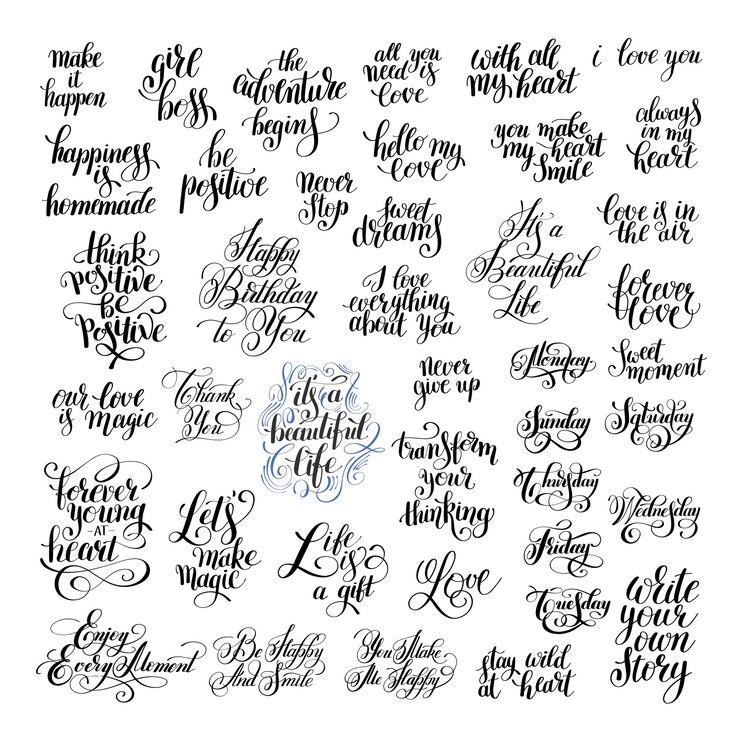 make
it
happen
girl
boss
the
adventure
begins
all you
need is
love
with all
my heart
i love you
happiness
is
homemade
be
positive
never
stop
hello my
love
you make
my heart
smile
always
in my
heart
sweet
dreams
It's a
Beautiful
Life
love is in
the air
think
positive
be
positive
Happy
Birthday
to You
I love
everything
about you
forever
love
our love
is magic
Thank
You
it's a
beautiful
life
never
give up
Monday
Sweet
moment
Sunday
Saturday
forever
young
-AT-
heart
Let's
make
magic
Life
is
a gift
transform
your
thinking
Love
Thursday
Wednesday
Friday
Tuesday
write
your
own
story
Enjoy
Every Moment
Be Happy
And Smile
You Make
Me Happy
stay wild
at heart